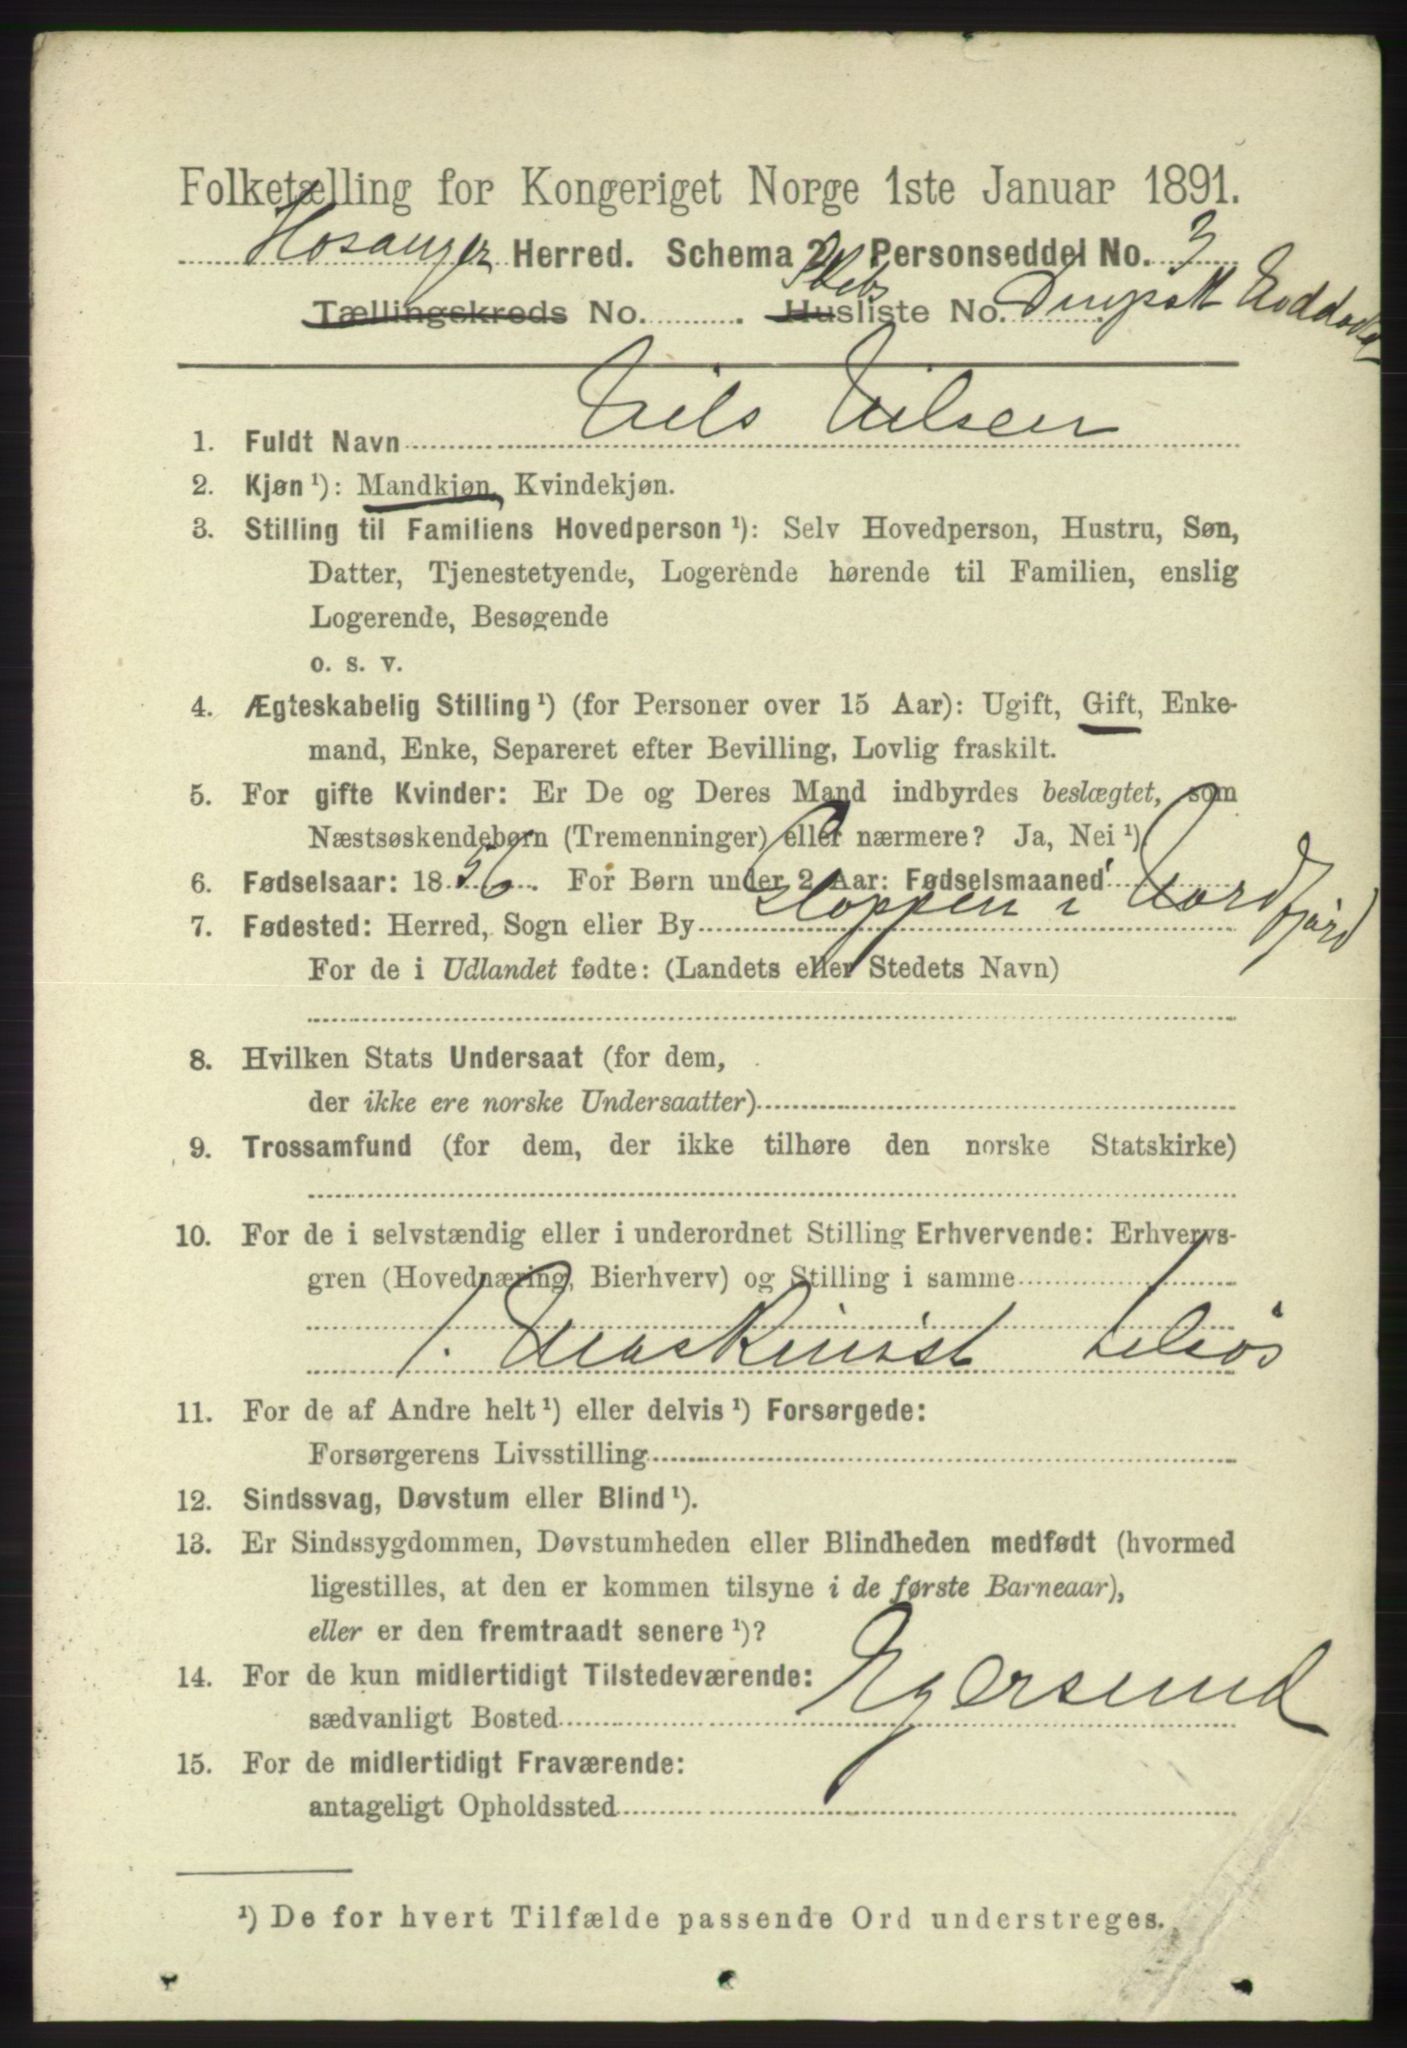 Folketælling for Kongeriget Norge 1ste Januar 1891.
Hosanger Herred. Schema 2. Personseddel No. 3
Skibs
Tællingskreds No. Husliste No. Dmpsk
1. Fuldt Navn Nils Nilsen
2. Kjøn ¹): Mandkjøn, Kvindekjøn.
3. Stilling til Familiens Hovedperson ¹): Selv Hovedperson, Hustru, Søn,
Datter, Tjenestetyende, Logerende hørende til Familien, enslig
Logerende, Besøgende
o. s. v.
4. Ægteskabelig Stilling ¹) (for Personer over 15 Aar): Ugift, Gift, Enke-
mand, Enke, Separeret efter Bevilling, Lovlig fraskilt.
5. For gifte Kvinder: Er De og Deres Mand indbyrdes beslægtet, som
Næstsøskendebørn (Tremenninger) eller nærmere? Ja, Nei ¹)
6. Fødselsaar: 1856. For Børn under 2 Aar: Fødselsmaaned
7. Fødested: Herred, Sogn eller By Gloppen i Nordfjord
For de i Udlandet fødte: (Landets eller Stedets Navn)
8. Hvilken Stats Undersaat (for dem,
der ikke ere norske Undersaatter)
9. Trossamfund (for dem, der ikke tilhøre den norske Statskirke)
10. For de i selvstændig eller i underordnet Stilling Erhvervende: Erhvervs-
gren (Hovednæring, Bierhverv) og Stilling i samme
1. Maskinist tilsøs
11. For de af Andre helt ¹) eller delvis ¹) Forsørgede:
Forsørgerens Livsstilling
12. Sindssvag, Døvstum eller Blind ¹).
13. Er Sindssygdommen, Døvstumheden eller Blindheden medfødt (hvormed
ligestilles, at den er kommen tilsyne i de første Barneaar),
eller er den fremtraadt senere ¹)?
14. For de kun midlertidigt Tilstedeværende:
sædvanligt Bosted Egersund
15. For de midlertidigt Fraværende:
antageligt Opholdssted
¹) De for hvert Tilfælde passende Ord understreges.